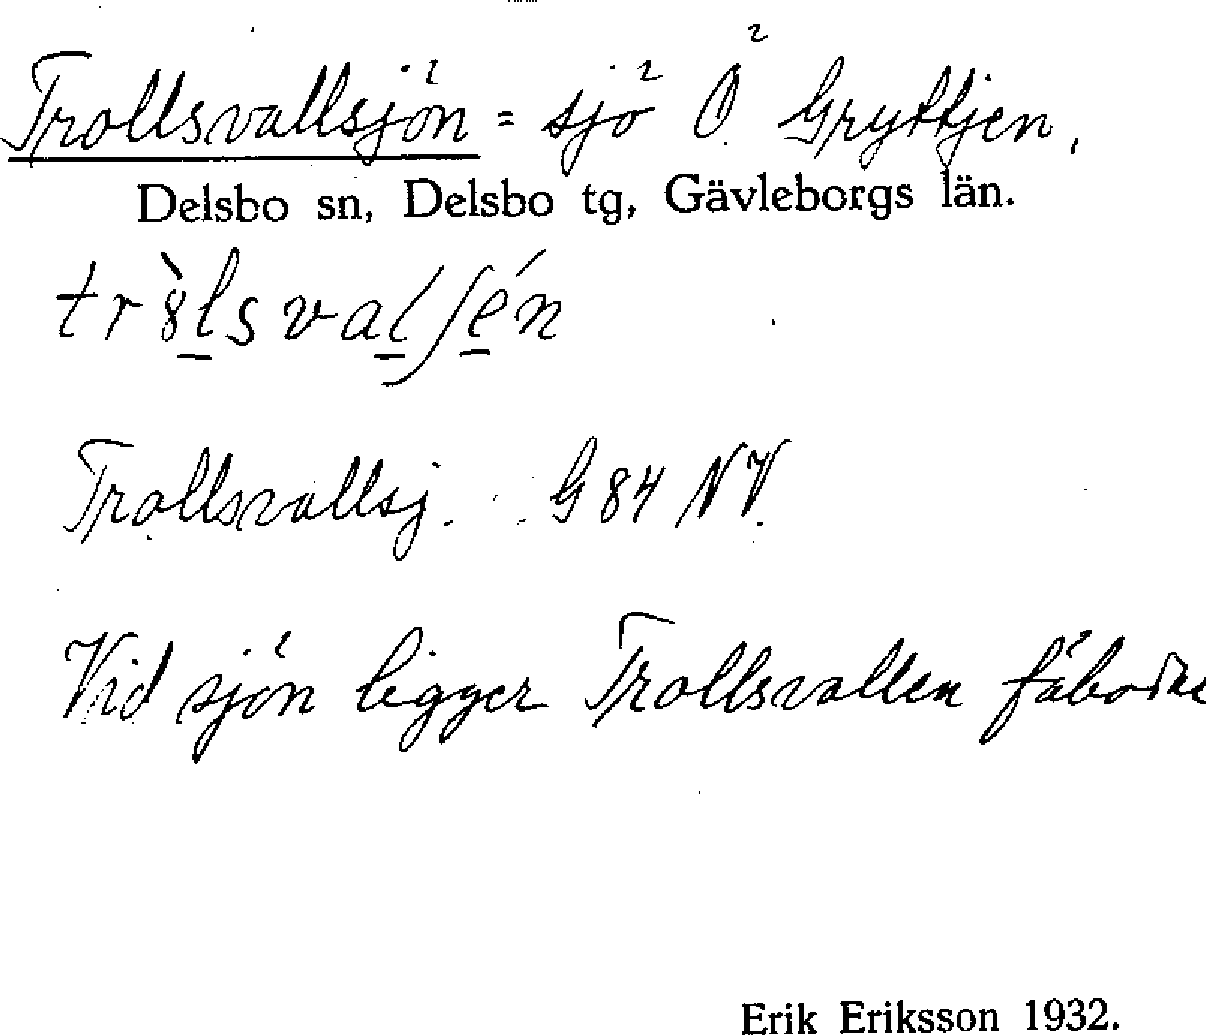 Trollsvallsjön = sjö Ö Gryttjen,
Delsbo sn, Delsbo tg, Gävleborgs län.
Trollsvallsj. G 84 NV.
Vid sjön ligger Trollsvallen fäbodar
Erik Eriksson 1932.